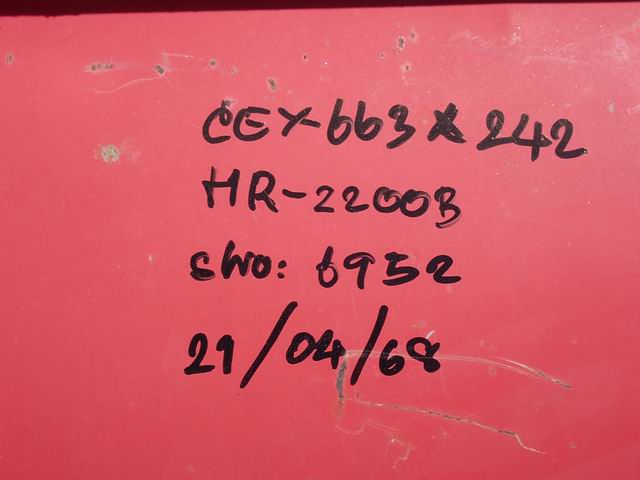 CEX-663X242
HR-2200B
SWO: 6952
29/04/68